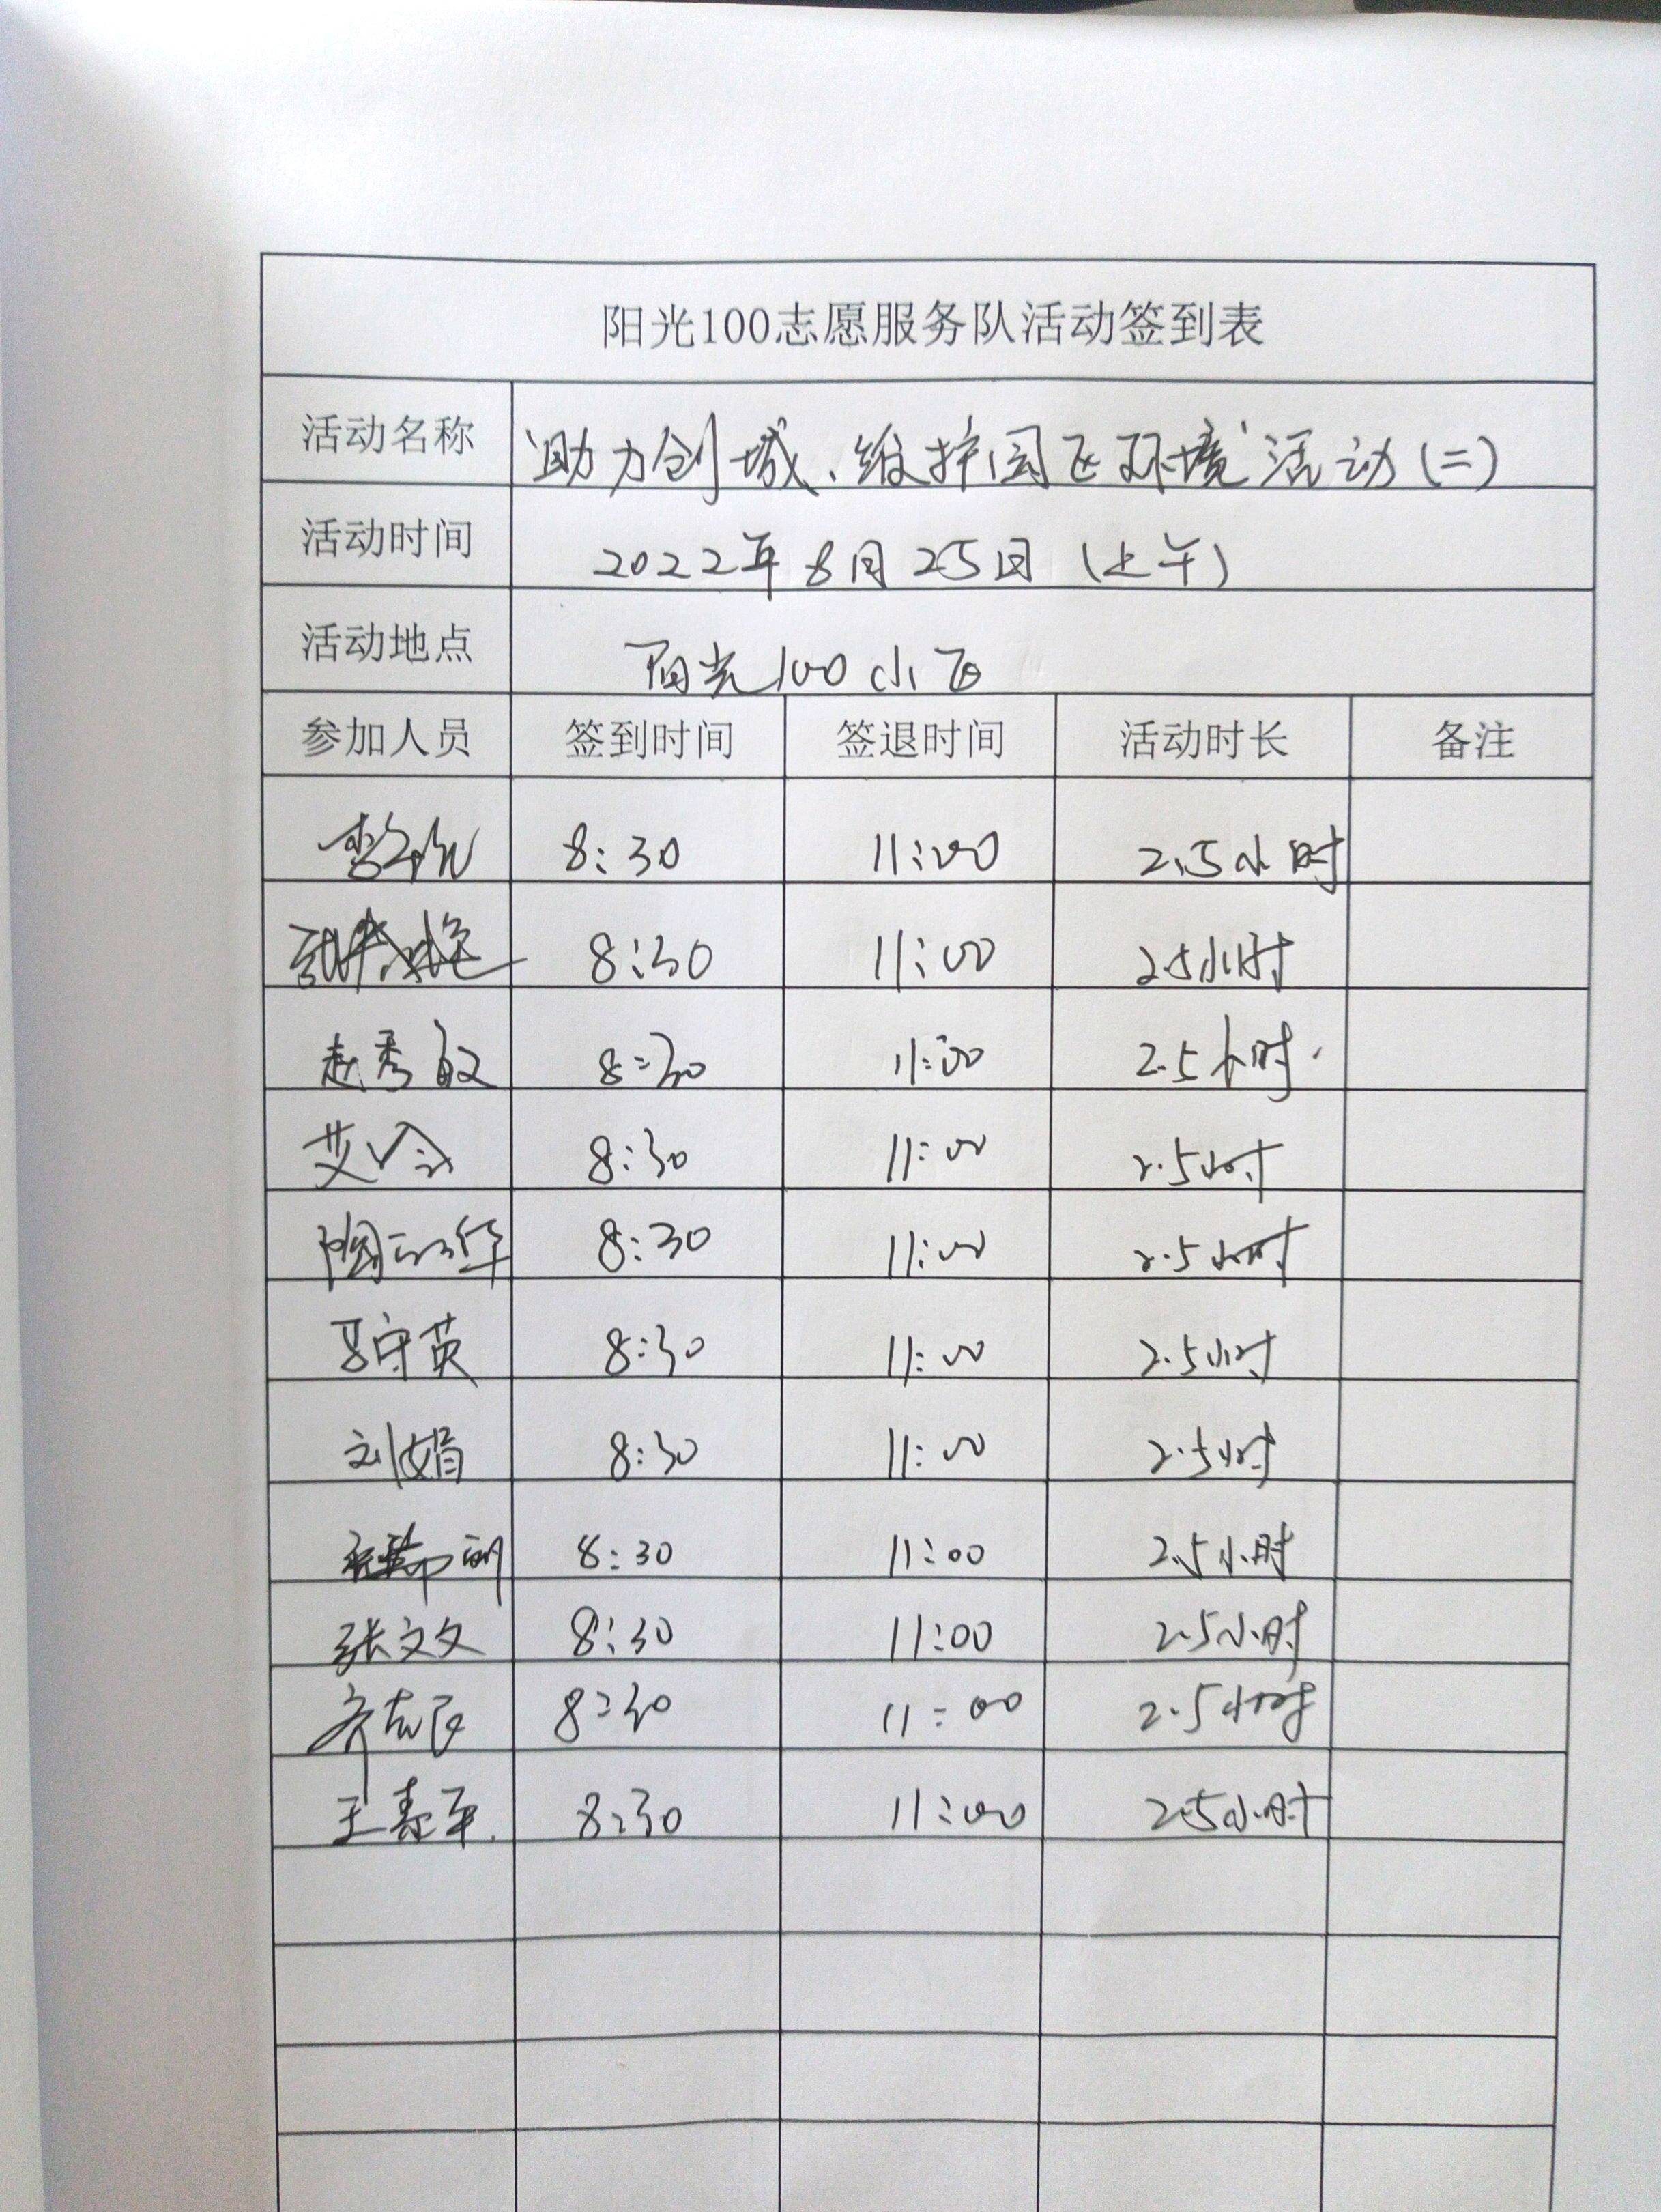 阳光100志愿服务队活动签到表
活动名称 "助力创城、维护园区环境"活动(二)
活动时间 2022年8月25日(上午)
活动地点 阳光100小区
参加人员 签到时间 签退时间 活动时长 备注
8:30 11:00 2.5小时
8:30 11:00 2.5小时
赵秀敏 8:30 11:00 2.5小时
艾 8:30 11:00 2.5小时
陶 华 8:30 11:00 2.5小时
吕守英 8:30 11:00 2.5小时
刘娟 8:30 11:00 2.5小时
8:30 11:00 2.5小时
张文文 8:30 11:00 2.5小时
齐志民 8:30 11:00 2.5小时
王春平 8:30 11:00 2.5小时